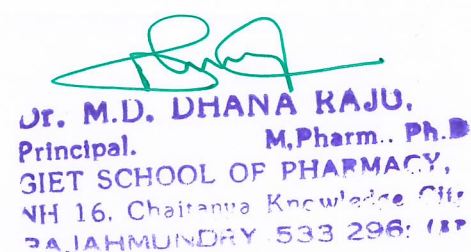 Dr. M.D. DHANA RAJU,
Principal. M,Pharm.. Ph.D
GIET SCHOOL OF PHARMACY,
NH 16, Chaitanya Knowledge City
RAJAHMUNDRY 533 296;